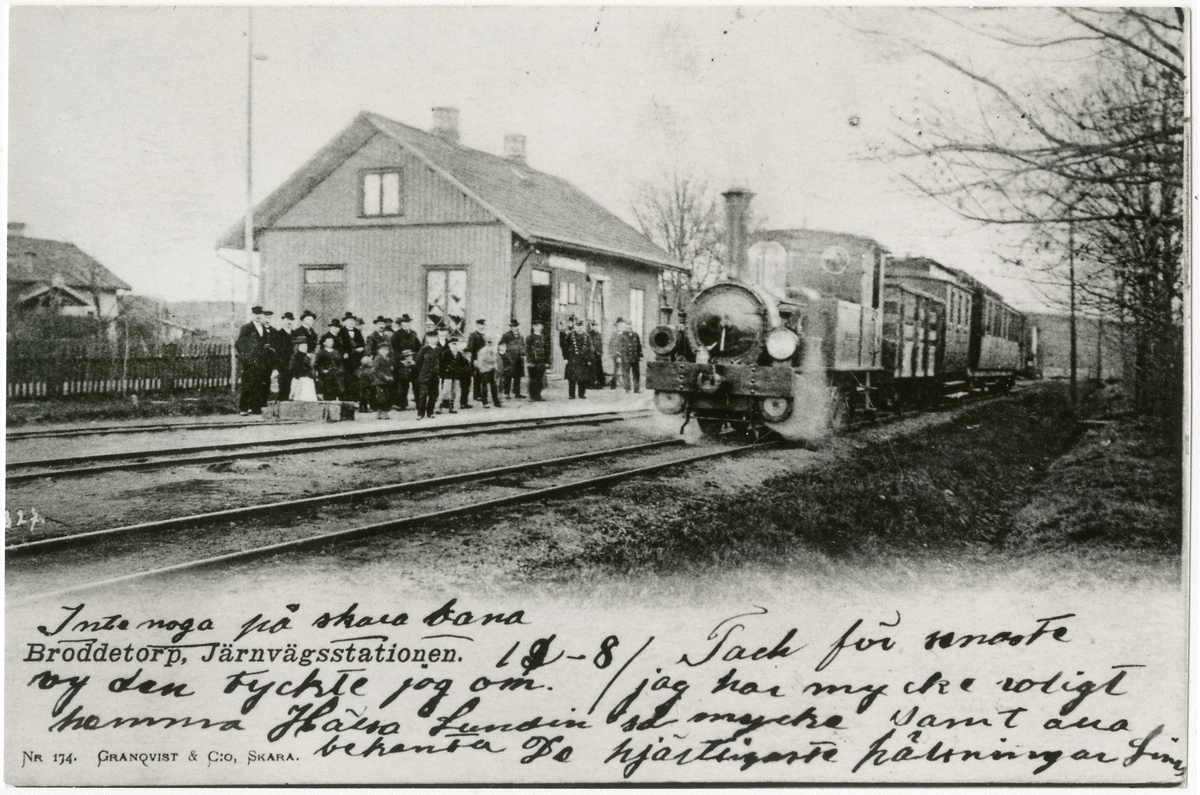 827.
Inte noga på skara bana
Broddetorp, Järnvägsstationen.
18 - 8 / Tack för senaste
vy den tyckte jag om. / jag har mycke roligt
hemma Hälsa Lundin så mycke samt alla
bekanta De hjärtligaste hälsningar
Nr 174. Granqvist & C:o, Skara.